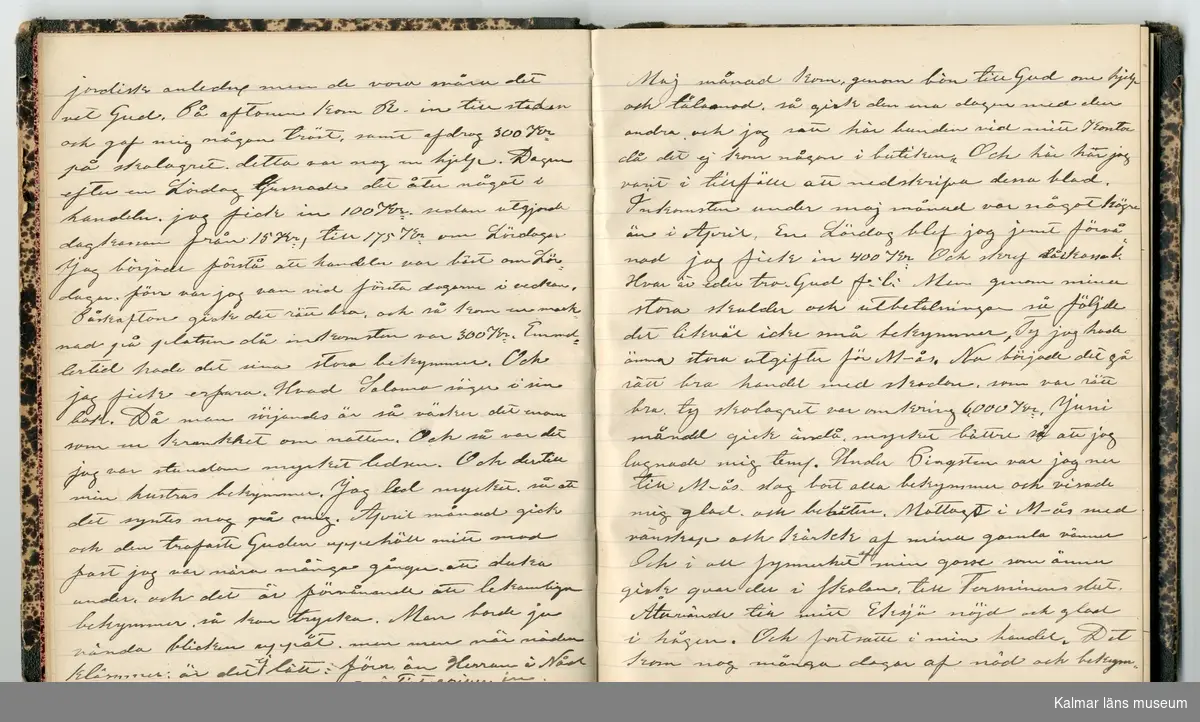 jordisk anledng men de vora måna det
vet Gud. På aftonen kom R. in till staden
och gaf mig någon tröst, samt afdrog 300 Kr
på skolagret. detta var nog en hjelp. Dagen
efter en Lördag ljusnade det åter något i
handeln. jag fick in 100 Kr. sedan utgjorde
dagkassan från 15 Kr, till 175 Kr om Lördagen
Jag började förstå att handeln var bäst om Lör-
dagen. förr var jag van vid första dagarne i veckan.
Påskafton gick det rätt bra, och så kom en mark-
nad på platsen då inkomsten var 300 Kr. Emed-
lertid hade det sina stora bekymmer. Och
jag fick erfara. Hvad Salomo säger i sin
bok. Då man sörjande är så väcker det enom
som en krankhet om natten. Och så var det
jag var stundom mycket ledsen. Och dertill
min hustrus bekymmer. Jag led mycket. så att
det syntes nog på mig. April månad gick
och den trofaste Guden uppehöll mitt mod
fast jag var nära många gånger att duka
under, och det är förvånande att lekamliga
bekymmer, så kan trycka. Man borde ju
vända blicken uppåt. men men när nöden
klämmer: är det ej lätt: förr än Herran i Nåd
Maj månad kom, genom bön till Gud om hjelp
och tålamod. så gick den ena dagen med den
andra och jag satt här bunden vid mitt Kontor
då det ej kom någon i butiken. Och här har jag
varit i tillfälle att nedskrifva dessa blad.
Inkomsten under maj månad var något högre
än i April, En Lördag blef jag jemt förvå
nad jag fick in 400 Kr. Och skref
Hvar är eder tro. Gud Men genom mina
stora skulder och utbetalningar så följde
det likväl icke små bekymmer, Ty jag hade
ännu stora utgifter för M-ås. Nu började det gå
rätt bra handel med skodon, som var rätt
bra. ty skolagret var omkring 6,000 Kr. Juni
måndt gick ändå. mycket bättre så att jag
lugnade mig temf. Under Pingsten var jag ner
till M-ås. slog bort alla bekymmer och visade
mig glad och belåten. Mottogs i M-ås med
vänskap och kärlek af mina gamla vänner
Och i all synnerhet af min gosse som ännu
gick qvar der i Skolan, till Terminens slut.
Återvände till mitt Eksjö nöjd och glad
i hågen. Och fortsatte i min handel. Det
kom nog många dagar af nöd och bekym-
Kalmar läns museum